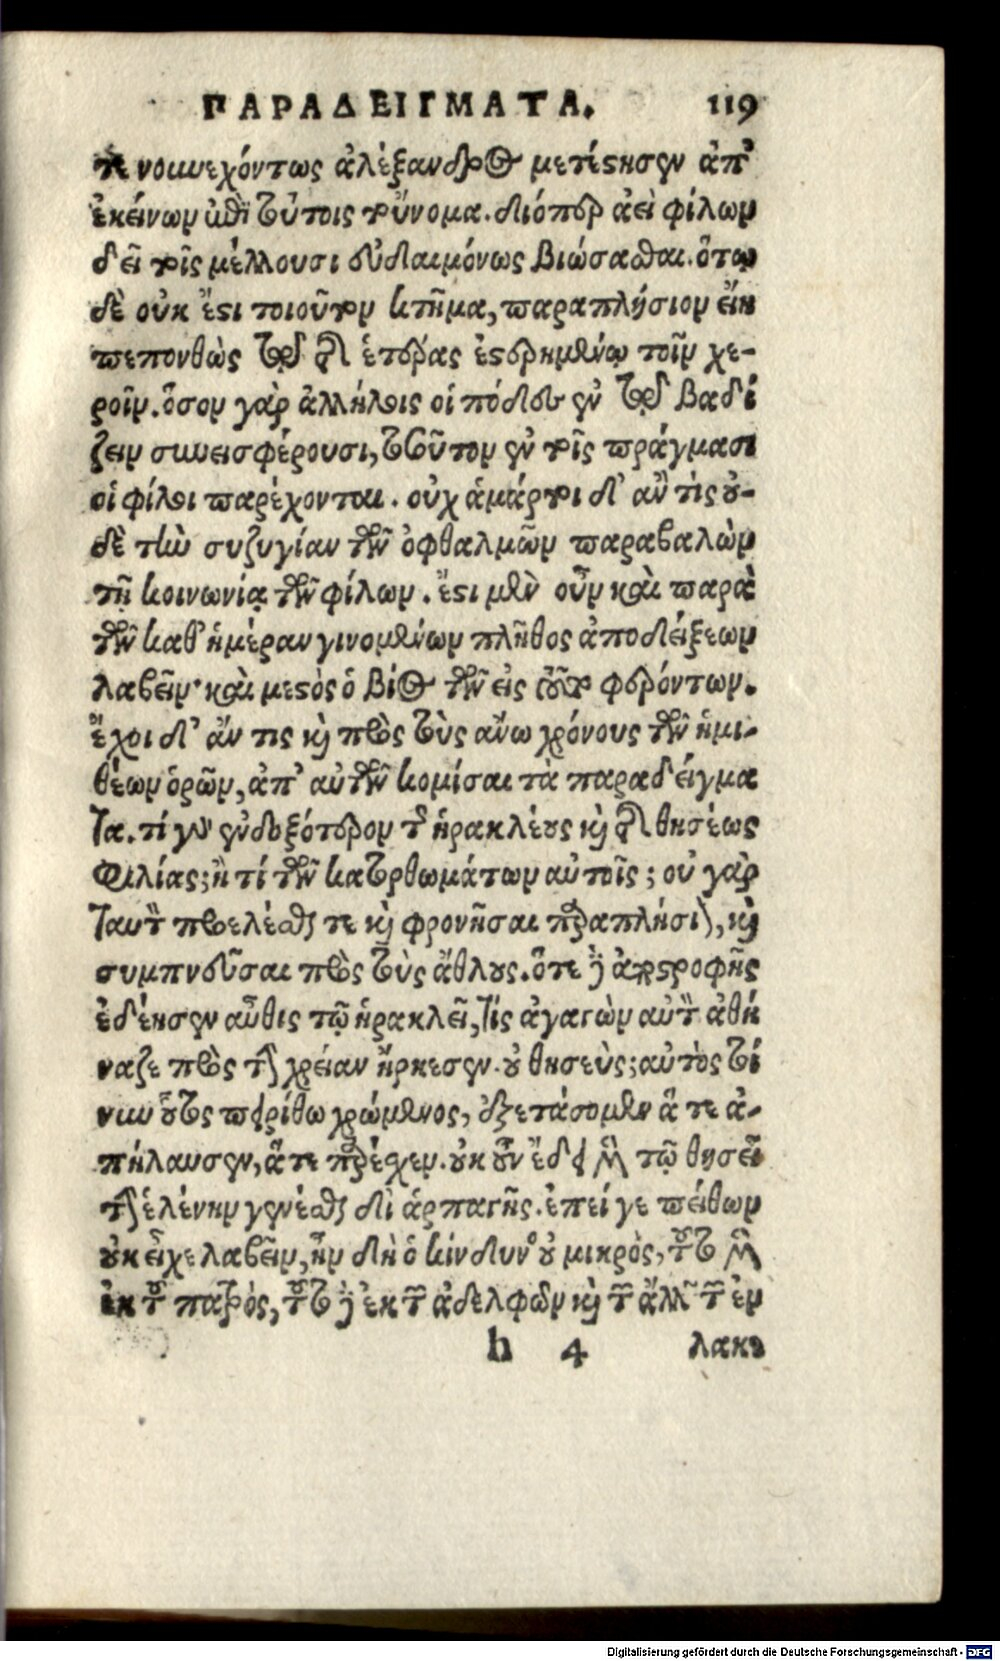 ΠΑΡΑΔΕΙΓΜΑΤΑ. 119
τε νουνεχόντως ἀλέξανδρος μετέστησεν ἀπ'
ἐκείνων ἐπὶ τούτοις τοὔνομα. διόπερ ἀεὶ φίλων
δεῖ τοῖς μέλλουσι εὐδαιμόνως βιώσασθαι. ὅτῳ
δὲ οὐκ ἔστι τοιοῦτον κτῆμα, παραπλήσιον εἴη
πεπονθὼς τῷ τῆς ἑτέρας ἐστερημένῳ τοῖν χε-
ροῖν. ὅσον γὰρ ἀλλήλοις οἱ πόδες ἐν τῷ βαδί
ζειν συνεισφέρουσι, τοσοῦτον ἐν τοῖς πράγμασι
οἱ φίλοι παρέχονται. οὐχ ἁμάρτοι δ' ἂν τὶς οὐ-
δὲ τὴν συζυγίαν τῶν ὀφθαλμῶν παραβαλὼν
τῇ κοινωνίᾳ τῶν φίλων. ἔστι μὲν οὖν καὶ παρὰ
τῶν καθ' ἡμέραν γινομένων πλῆθος ἀποδείξεων
λαβεῖν· καὶ μεστὸς ὁ βίος τῶν εἰς τοῦτο φερόντων.
ἔχοι δ' ἄν τις καὶ πρὸς τοὺς ἄνω χρόνους τῶν ἡμι-
θέων ὁρῶν, ἀπ' αὐτῶν κομίσαι τὰ παραδείγμα
τα. τί γὰρ ἐνδοξότερον τῆς ἡρακλέους καὶ τῆς θησέως
φιλίας; ἢ τί τῶν κατορθωμάτων αὐτοῖς; οὐ γὰρ
ταυτὸν προελέσθαι τε καὶ φρονῆσαι παραπλήσιον, καὶ
συμπνεῦσαι πρὸς τοὺς ἄθλους. ὅτε δὲ ἀποστροφῆς
ἐδέησεν αὖθις τῷ ἡρακλεῖ, τίς ἀγαγὼν αὐτὸν ἀθή
ναζε πρὸς τὴν χρείαν ἤρκεσεν. οὐ θησεύς; αὐτὸς τί
νων οὗτος πειρίθῳ χρώμενος, ἐξετάσομεν ἅ τε ἀ-
πήλαυσεν, ἅ τε παρέσχεν. οὐκ οὖν ἔδει μὲν τῷ θησεῖ
τὴν ἑλένην γενέσθαι δι' ἁρπαγῆς. ἐπεί γε πείθων
οὐκ εἶχε λαβεῖν, ἦν δὴ ὁ κίνδυνος οὐ μικρὸς, τοῦτο μὲν
ἐκ τοῦ πατρὸς, τοῦτο δὲ ἐκ τῶν ἀδελφῶν καὶ τῶν ἄλλων τῶν ἐν
h 4 λακε
Digitalisierung gefördert durch die Deutsche Forschungsgemeinschaft - DFG